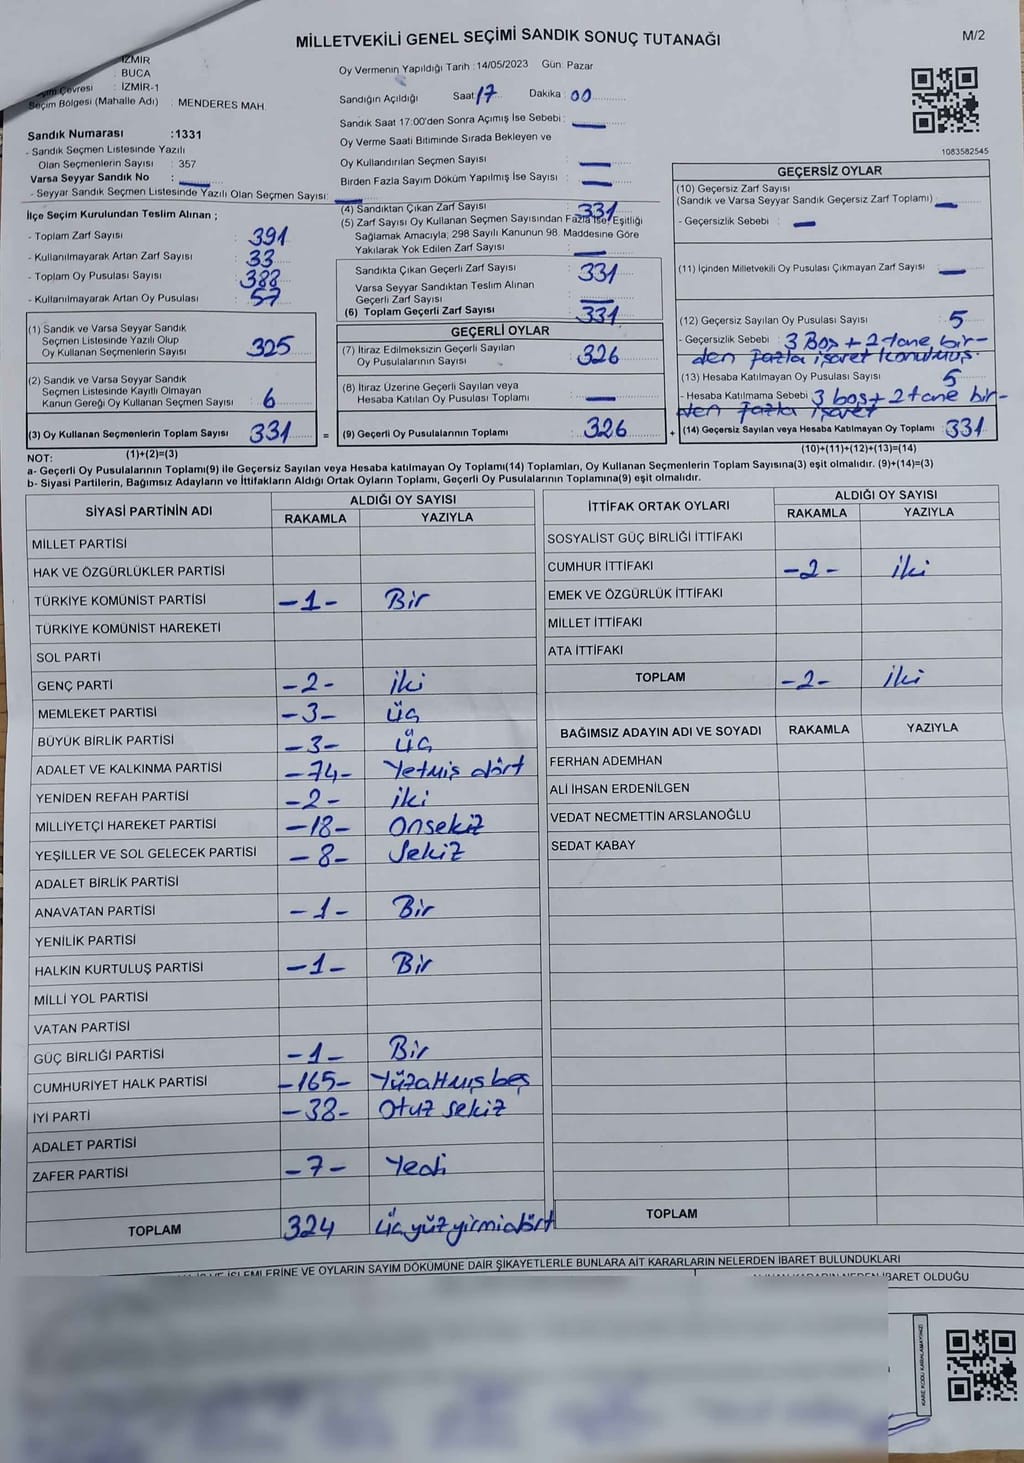 MİLLETVEKİLİ GENEL SEÇİMİ SANDIK SONUÇ TUTANAĞI
M/2
İZMİR
: BUCA
Çevresi : İZMİR-1
Seçim Bölgesi (Mahalle Adı) : MENDERES MAH.
Oy Vermenin Yapıldığı Tarih : 14/05/2023 Gün: Pazar
Sandığın Açıldığı Saat: 17 Dakika : 00
Sandık Saat 17:00'den Sonra Açımış İse Sebebi :
Oy Verme Saati Bitiminde Sırada Bekleyen ve
Oy Kullandırılan Seçmen Sayısı
Birden Fazla Sayım Döküm Yapılmış İse Sayısı :
1083582545
Sandık Numarası : 1331
- Sandık Seçmen Listesinde Yazılı
Olan Seçmenlerin Sayısı : 357
Varsa Seyyar Sandık No :
- Seyyar Sandık Seçmen Listesinde Yazılı Olan Seçmen Sayısı :
İlçe Seçim Kurulundan Teslim Alınan ;
- Toplam Zarf Sayısı : 391
- Kullanılmayarak Artan Zarf Sayısı : 33
- Toplam Oy Pusulası Sayısı : 388
- Kullanılmayarak Artan Oy Pusulası : 57
(1) Sandık ve Varsa Seyyar Sandık
Seçmen Listesinde Yazılı Olup
Oy Kullanan Seçmenlerin Sayısı : 325
(2) Sandık ve Varsa Seyyar Sandık
Seçmen Listesinde Kayıtlı Olmayan
Kanun Gereği Oy Kullanan Seçmen Sayısı : 6
(3) Oy Kullanan Seçmenlerin Toplam Sayısı : 331
(4) Sandıktan Çıkan Zarf Sayısı : 331
(5) Zarf Sayısı Oy Kullanan Seçmen Sayısından Fazla ise, Eşitliği
Sağlamak Amacıyla; 298 Sayılı Kanunun 98. Maddesine Göre
Yakılarak Yok Edilen Zarf Sayısı :
Sandıkta Çıkan Geçerli Zarf Sayısı : 331
Varsa Seyyar Sandıktan Teslim Alınan
Geçerli Zarf Sayısı :
(6) Toplam Geçerli Zarf Sayısı : 331
GEÇERLİ OYLAR
(7) İtiraz Edilmeksizin Geçerli Sayılan
Oy Pusulalarının Sayısı : 326
(8) İtiraz Üzerine Geçerli Sayılan veya
Hesaba Katılan Oy Pusulası Toplamı :
= (9) Geçerli Oy Pusulalarının Toplamı : 326
GEÇERSİZ OYLAR
(10) Geçersiz Zarf Sayısı
(Sandık ve Varsa Seyyar Sandık Geçersiz Zarf Toplamı) :
- Geçersizlik Sebebi :
(11) İçinden Milletvekili Oy Pusulası Çıkmayan Zarf Sayısı :
(12) Geçersiz Sayılan Oy Pusulası Sayısı : 5
- Geçersizlik Sebebi : 3 Boş + 2 tane bir-
den fazla işaret konulmuş.
(13) Hesaba Katılmayan Oy Pusulası Sayısı : 5
- Hesaba Katılmama Sebebi : 3 boş + 2 tane bir-
den fazla işaret
+ (14) Geçersiz Sayılan veya Hesaba Katılmayan Oy Toplamı : 331
NOT: (1)+(2)=(3)
(10)+(11)+(12)+(13)=(14)
a- Geçerli Oy Pusulalarının Toplamı(9) ile Geçersiz Sayılan veya Hesaba katılmayan Oy Toplamı(14) Toplamları, Oy Kullanan Seçmenlerin Toplam Sayısına(3) eşit olmalıdır. (9)+(14)=(3)
b- Siyasi Partilerin, Bağımsız Adayların ve İttifakların Aldığı Ortak Oyların Toplamı, Geçerli Oy Pusulalarının Toplamına(9) eşit olmalıdır.
SİYASİ PARTİNİN ADI ALDIĞI OY SAYISI
RAKAMLA YAZIYLA
MİLLET PARTİSİ
HAK VE ÖZGÜRLÜKLER PARTİSİ
TÜRKİYE KOMÜNİST PARTİSİ -1- Bir
TÜRKİYE KOMÜNİST HAREKETİ
SOL PARTİ
GENÇ PARTİ -2- iki
MEMLEKET PARTİSİ -3- üç
BÜYÜK BİRLİK PARTİSİ -3- üç
ADALET VE KALKINMA PARTİSİ -74- Yetmiş dört
YENİDEN REFAH PARTİSİ -2- iki
MİLLİYETÇİ HAREKET PARTİSİ -18- Onsekiz
YEŞİLLER VE SOL GELECEK PARTİSİ -8- Sekiz
ADALET BİRLİK PARTİSİ
ANAVATAN PARTİSİ -1- Bir
YENİLİK PARTİSİ
HALKIN KURTULUŞ PARTİSİ -1- Bir
MİLLİ YOL PARTİSİ
VATAN PARTİSİ
GÜÇ BİRLİĞİ PARTİSİ -1- Bir
CUMHURİYET HALK PARTİSİ -165- Yüzaltmış beş
İYİ PARTİ -38- Otuz sekiz
ADALET PARTİSİ
ZAFER PARTİSİ -7- Yedi
TOPLAM 324 üçyüzyirmidört
İTTİFAK ORTAK OYLARI ALDIĞI OY SAYISI
RAKAMLA YAZIYLA
SOSYALİST GÜÇ BİRLİĞİ İTTİFAKI
CUMHUR İTTİFAKI -2- iki
EMEK VE ÖZGÜRLÜK İTTİFAKI
MİLLET İTTİFAKI
ATA İTTİFAKI
TOPLAM -2- iki
BAĞIMSIZ ADAYIN ADI VE SOYADI RAKAMLA YAZIYLA
FERHAN ADEMHAN
ALİ İHSAN ERDENİLGEN
VEDAT NECMETTİN ARSLANOĞLU
SEDAT KABAY
TOPLAM
İŞLEMLERİNE VE OYLARIN SAYIM DÖKÜMÜNE DAİR ŞİKAYETLERLE BUNLARA AİT KARARLARIN NELERDEN İBARET BULUNDUKLARI
KARARIN NEDEN İBARET OLDUĞU
KARE KODU KARALAMAYINIZ!